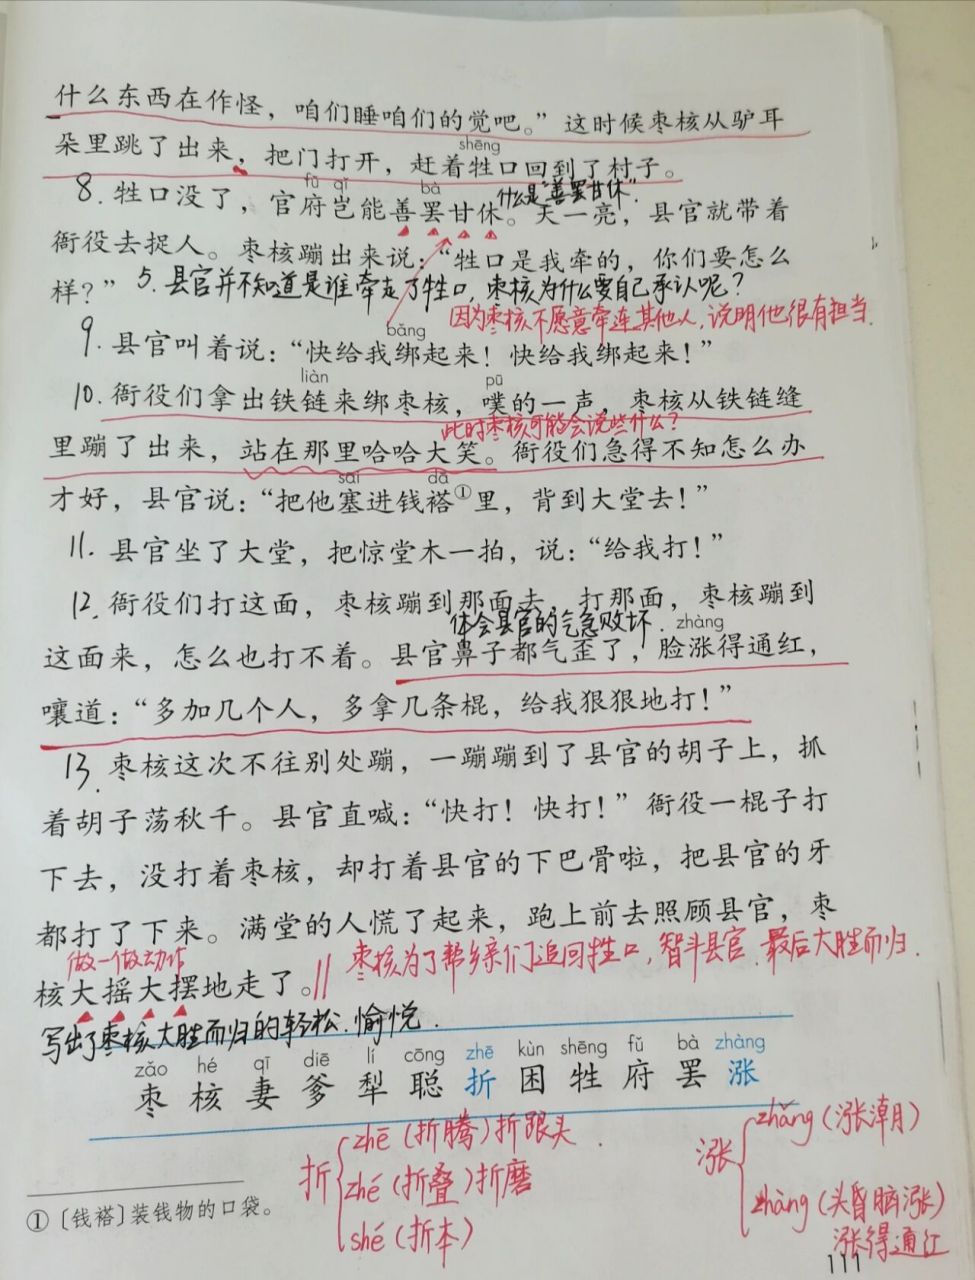 什么东西在作怪，咱们睡咱们的觉吧。”这时候枣核从驴耳
shēng
朵里跳了出来，把门打开，赶着牲口回到了村子。
fǔ qǐ bà
什么是“善罢甘休”.
8.牲口没了，官府岂能善罢甘休。天一亮，县官就带着
衙役去捉人。枣核蹦出来说：“牲口是我牵的，你们要怎么
样？”
5.县官并不知道是谁牵走了牲口，枣核为什么要自己承认呢？
因为枣核不愿意牵连其他人，说明他很有担当.
bǎng
9.县官叫着说：“快给我绑起来！快给我绑起来！”
liàn pū
10.衙役们拿出铁链来绑枣核，噗的一声，枣核从铁链缝
此时枣核可能会说些什么？
里蹦了出来，站在那里哈哈大笑。衙役们急得不知怎么办
sāi dā
才好，县官说：“把他塞进钱褡①里，背到大堂去！”
11.县官坐了大堂，把惊堂木一拍，说：“给我打！”
12.衙役们打这面，枣核蹦到那面去，打那面，枣核蹦到
体会县官的气急败坏.
zhàng
这面来，怎么也打不着。县官鼻子都气歪了，脸涨得通红，
嚷道：“多加几个人，多拿几条棍，给我狠狠地打！”
13.枣核这次不往别处蹦，一蹦蹦到了县官的胡子上，抓
着胡子荡秋千。县官直喊：“快打！快打！”衙役一棍子打
下去，没打着枣核，却打着县官的下巴骨啦，把县官的牙
都打了下来。满堂的人慌了起来，跑上前去照顾县官，枣
做一做动作
枣核为了帮乡亲们追回牲口，智斗县官.最后大胜而归.
核大摇大摆地走了。
写出了枣核大胜而归的轻松、愉悦.
zǎo hé qī diē lí cōng zhē kùn shēng fǔ bà zhàng
枣核妻爹犁聪折困牲府罢涨
折
zhē（折腾）折跟头
zhé（折叠）折磨
shé（折本）
涨
zhǎng（涨潮）
zhàng（头昏脑涨）
涨得通红
①〔钱褡〕装钱物的口袋。
111